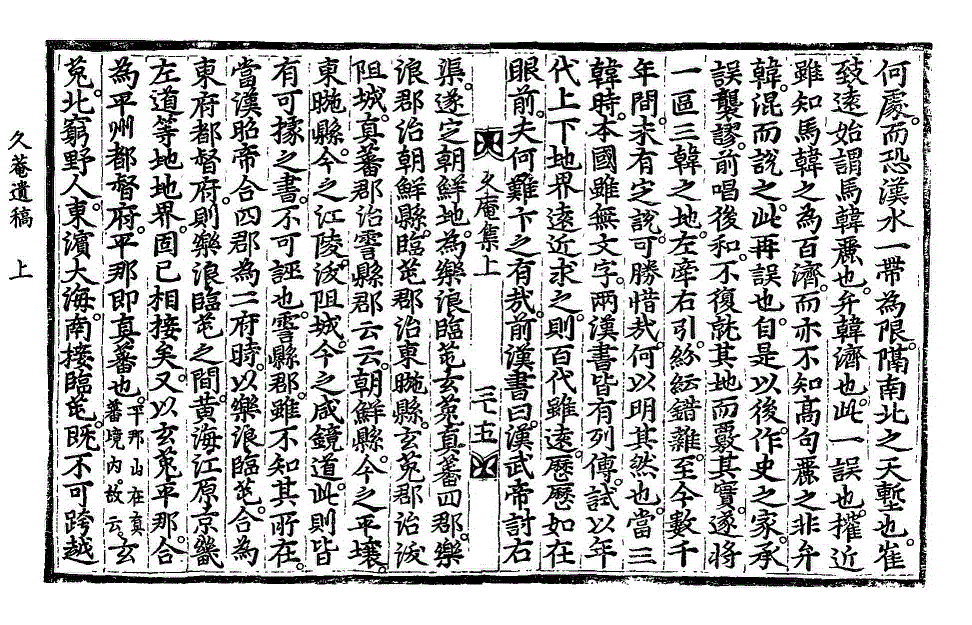 何處。而恐漢水一帶為限隔南北之天塹也。崔
致遠始謂馬韓麗也。弁韓濟也。此一誤也。權近
雖知馬韓之為百濟。而亦不知高句麗之非弁
韓。混而說之。此再誤也。自是以後。作史之家。承
誤襲謬。前唱後和。不復就其地而覈其實。遂將
一區三韓之地。左牽右引。紛紜錯雜。至今數千
年間。未有定說。可勝惜哉。何以明其然也。當三
韓時。本國雖無文字。兩漢書皆有列傳。試以年
代上下地界遠近求之。則百代雖遠。歷歷如在
眼前。夫何難卞之有哉。前漢書曰。漢武帝討右
久庵集上
三十五
渠。遂定朝鮮地。為樂浪臨芚玄菟真蕃四郡。樂
浪郡治朝鮮縣。臨芚郡治東暆縣。玄菟郡治沃
阻城。真蕃郡治霅縣郡云云。朝鮮縣。今之平壤。
東暆縣。今之江陵。沃阻城。今之咸鏡道。此則皆
有可據之書。不可誣也。霅縣郡。雖不知其所在。
當漢昭帝合四郡為二府時。以樂浪臨芚。合為
東府都督府。則樂浪臨芚之間。黃海江原京畿
左道等地地界。固已相接矣。又以玄菟平那。合
為平州都督府。平那即真蕃也。平那山在真蕃境內。故云。玄
菟。北窮野人。東濱大海。南接臨芚。既不可跨越
久菴遺稿 上